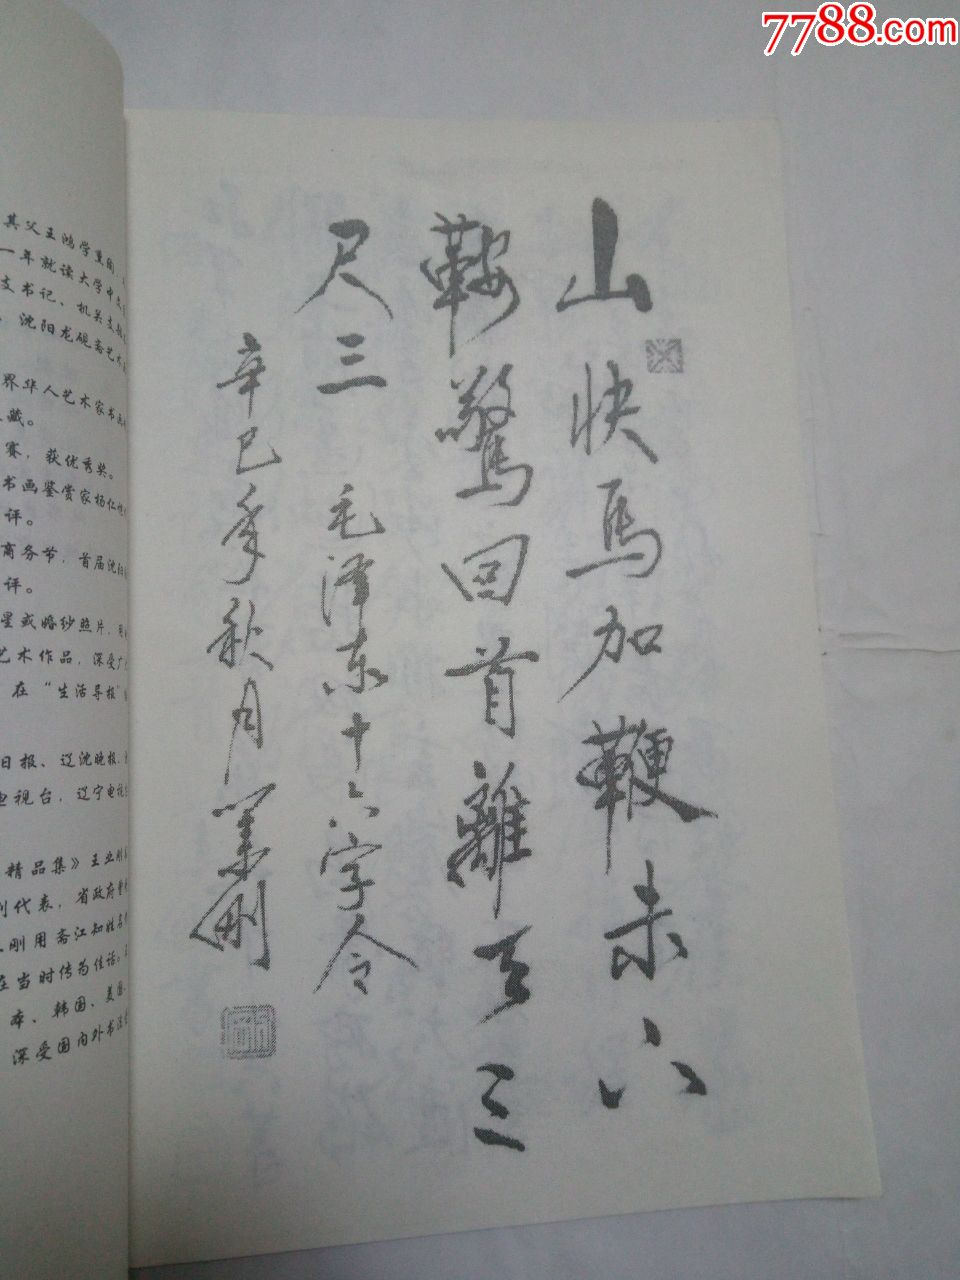 7788.com
山快馬加鞭未下
鞍驚回首離天三
尺三 毛泽东十六字令
辛巳年秋月業刚
其父王鸿学熏陶,
一年就读大学中文
支书记、机关支
沈阳龙砚斋艺术
界华人艺术家书画
藏。
赛,获优秀奖。
书画鉴赏家杨仁恺
评。
商务节,首届沈阳
评。
星或婚纱照片,
艺术作品,深受广
在“生活导报”
日报、辽沈晚报、
电视台,辽宁电视
精品集》王业刚
列代表,省政府
刚用斋江知姓名
在当时传为佳话。
本、韩国、美国、
深受国内外书法